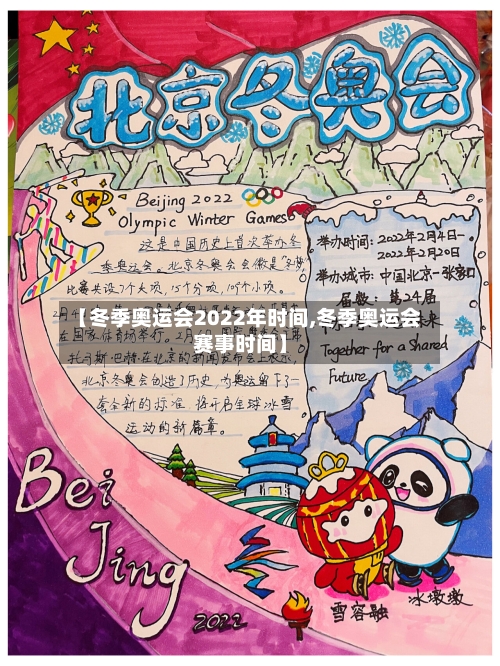 北京冬奥会
Beijing 2022
Olympic Winter Games
这是中国历史上首次举办冬
季奥运会。北京冬奥会会徽是“冬梦”
比赛共设7个大项，15个分项，109个小项。
举办时间：2022年2月4日—
2022年2月20日
举办城市：中国北京—张家口
届数：第24届
未来
Together for a Shared
Future
【冬季奥运会2022年时间,冬季奥运会
赛事时间】
在北京的新闻发布会上表示，
北京冬奥会创造了历史，为奥运留下了一
套全新的标准，将开启全球冰雪
运动的新篇章。
Bei
Jing
2022
雪容融
冰墩墩